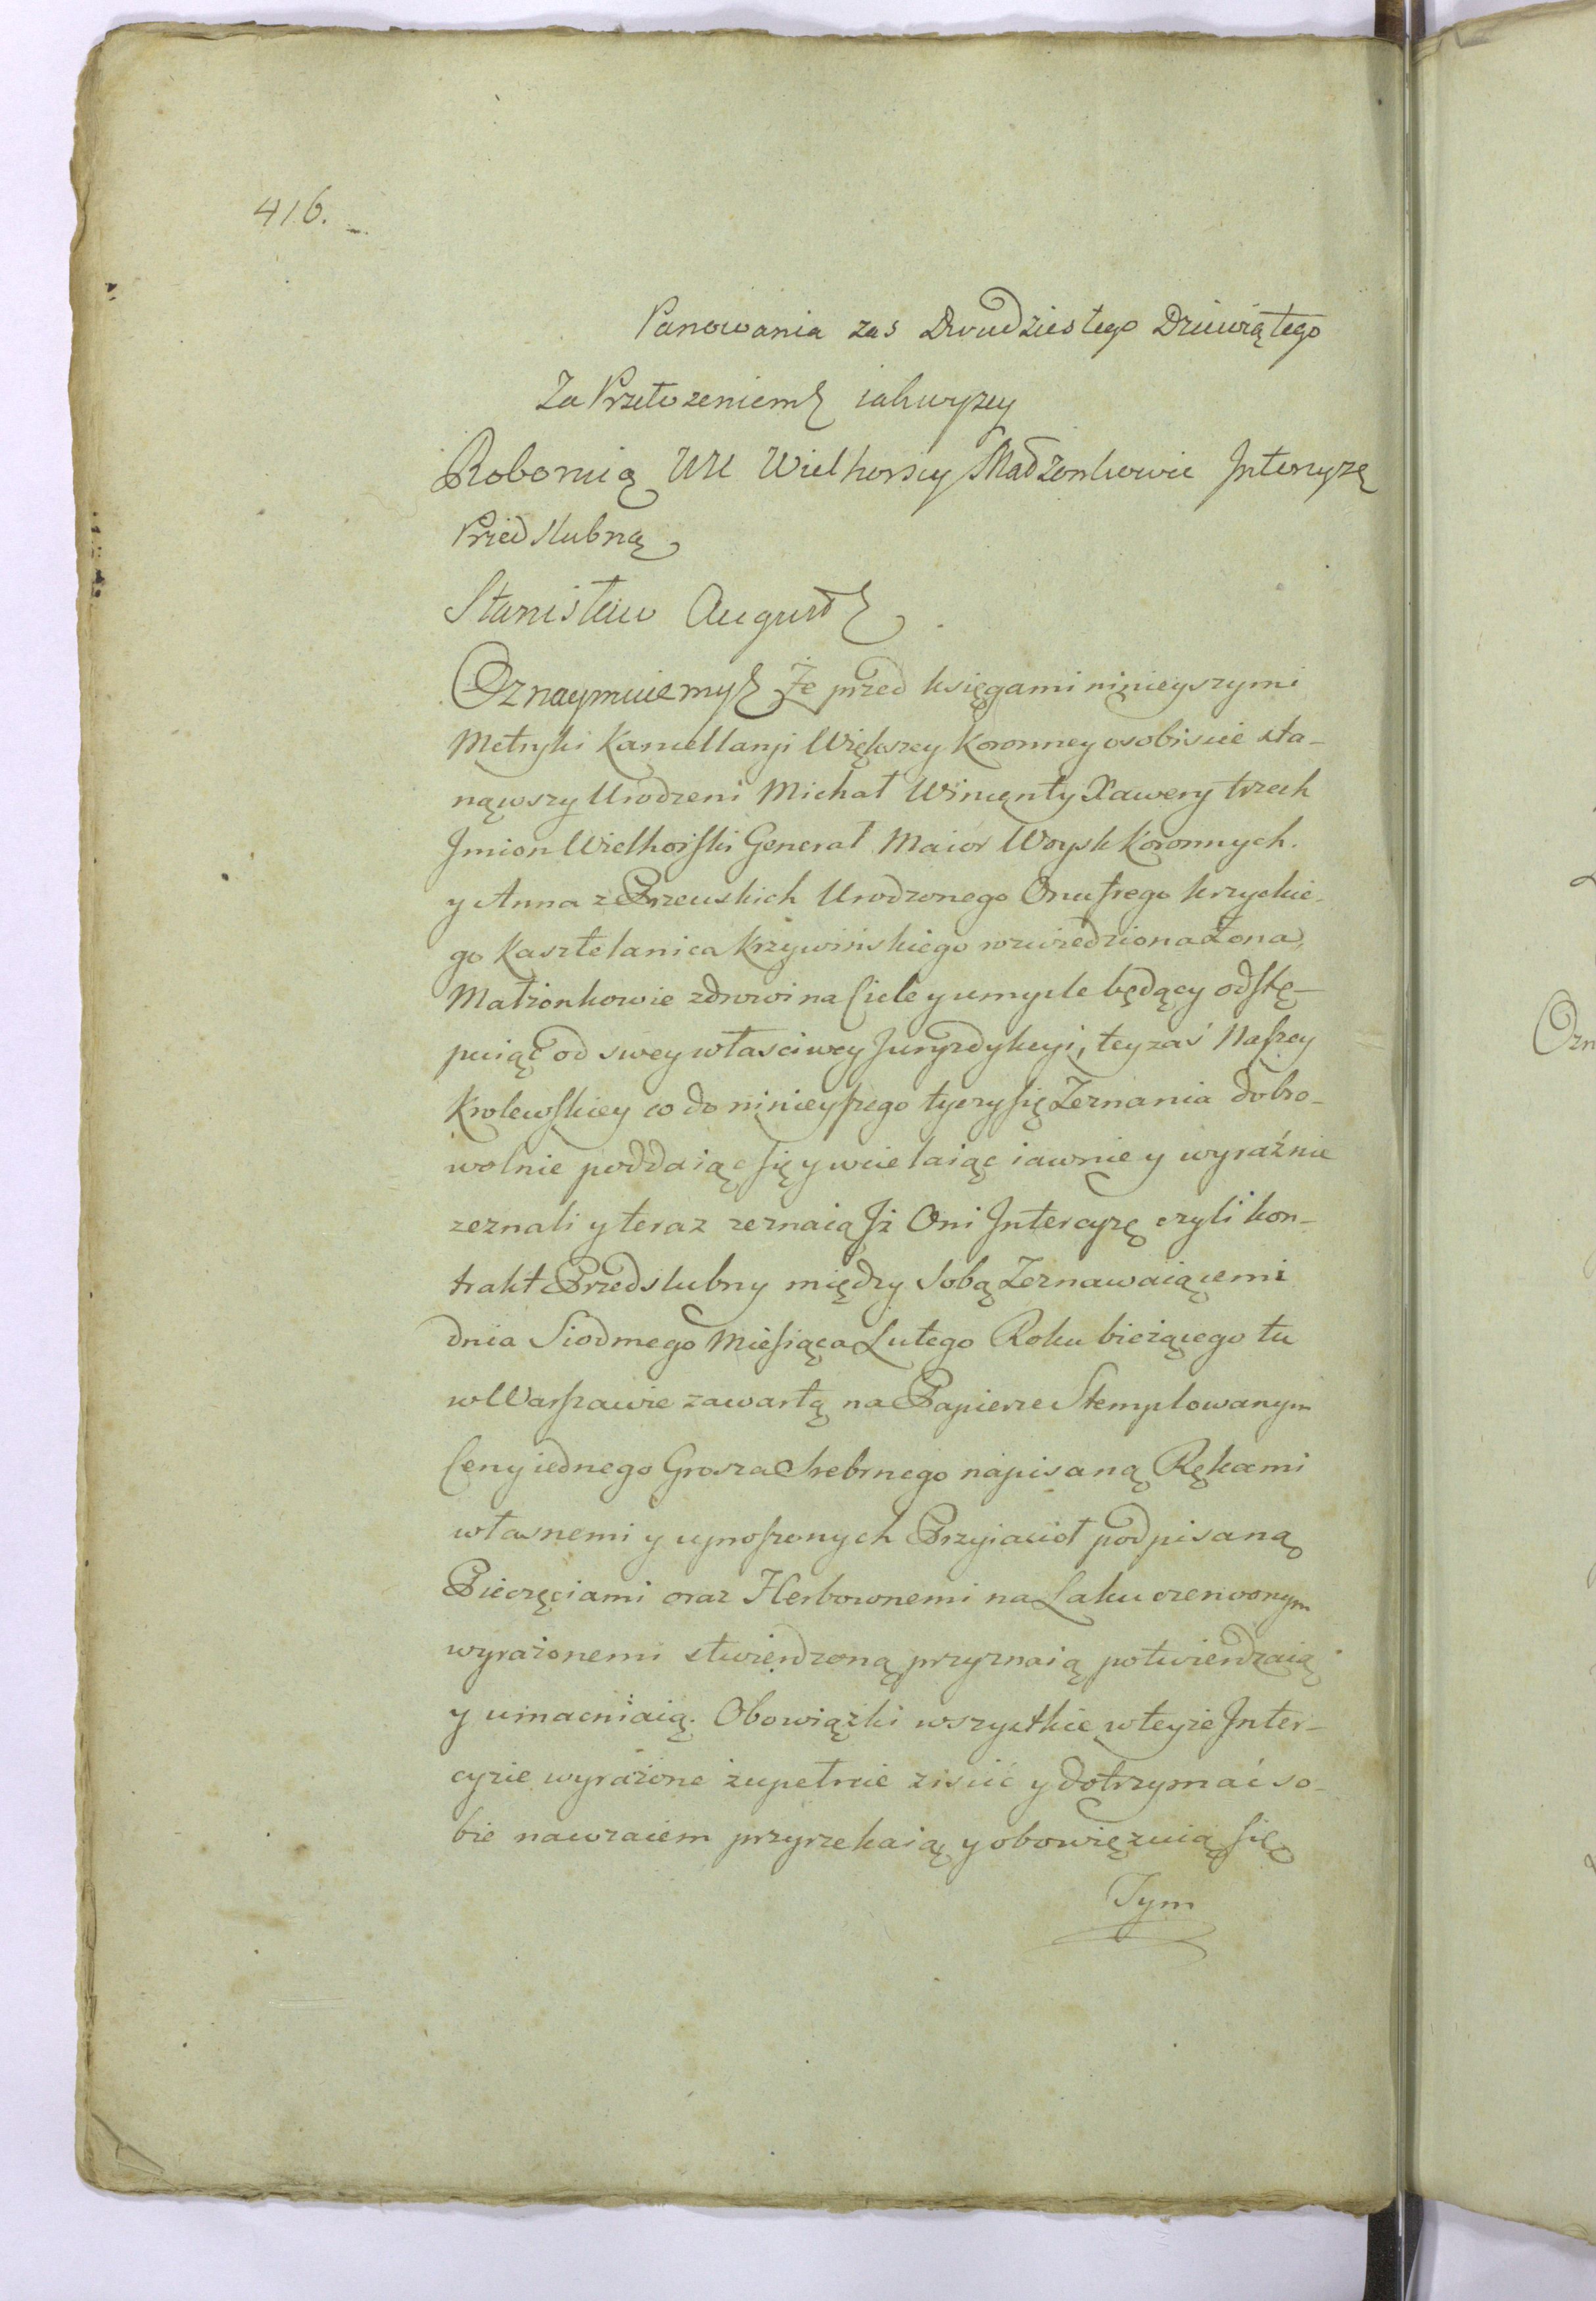 416.
Panowania zas Dwudziestego Dziewiątego
Za Przełozeniem iakwyzey
Roboruią UU Wielhorscy Małzonkowie Intercyzę
Przedslubną
Stanisław August
Oznaymuiemy Ze przed księgami ninieyszymi
Metryki Kancellaryi Większey Koronney osobiscie sta-
nąwszy Urodzeni Michał Wincęnty Xawery trzech
Jmion Wielhorski Generał Maior Woysk Koronnych.
y Anna z Przeuskich Urodzonego Onufrego krzyckie-
go Kasztelanica Krzywińskiego rozwiedziona Zona
Małżonkowie zdrowi na Ciele y umysle będący odstę-
puiąc od swey własciwey Juryzdykcyi, tey zaś Naszey
Krolewskiey co do ninieyszego tyczy się Zeznania dobro-
wolnie poddaiąc się y wcielaiąc iawnie y wyraźnie
zeznali y teraz zeznaią Jż Oni Intercyzę czyli kon-
trakt Przedslubny między Sobą Zeznawaiącemi
dnia Siodmego Miesiąca Lutego Roku bieżącego tu
w Warszawie zawartą na Papierze Stemplowanym
Ceny iednego Grosza Srebrnego napisaną Rękami
własnemi y uproszonych Przyiacioł podpisaną
Pieczęciami oraz Herbownemi na Laku czerwonym
wyrażonemi stwierdzoną przyznaią potwierdzaią
y umacniaią. Obowiązki wszystkie w teyże Inter-
cyzie wyrażone zupełnie ziscić y dotrzymać so-
bie nawzaiem przyrzekaią y obowięzuią się
Tym
Ozn